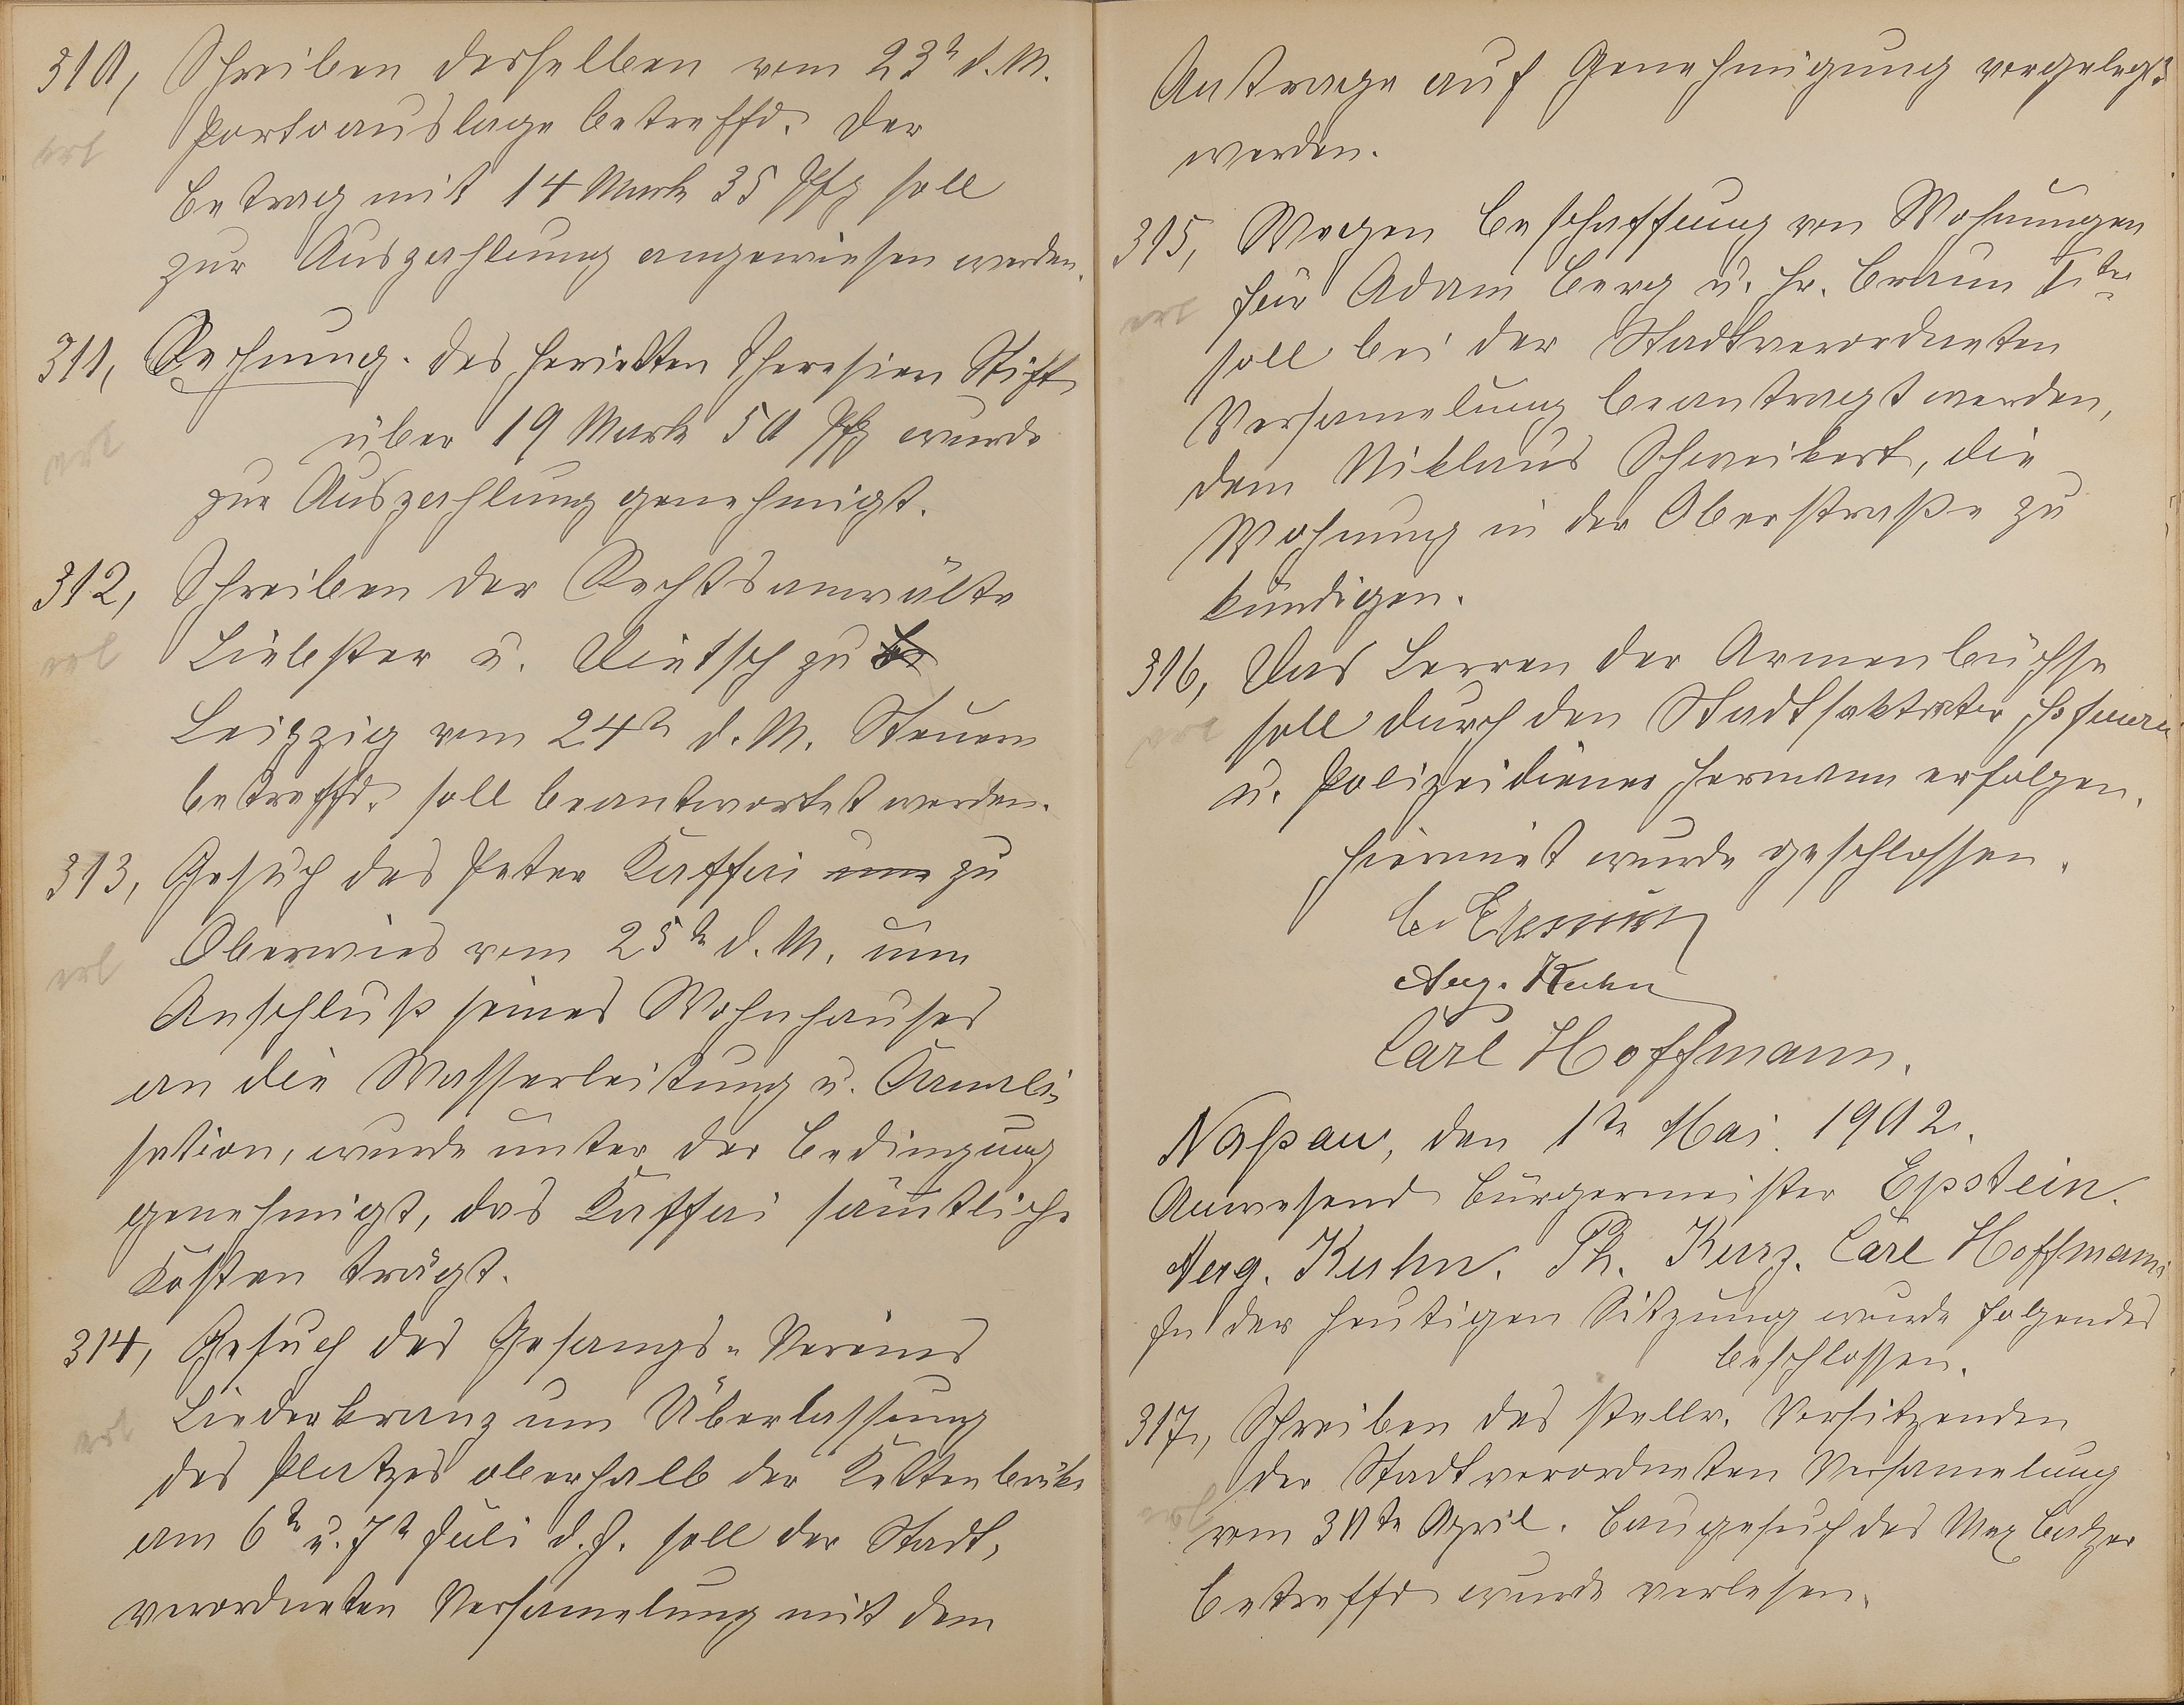 310, Schreiben desselben vom 23t d. M.
Portoauslage betreffd. Der
erl
Betrag mit 14 Mark 35 Pfg soll
zur Auszahlung angewiesen werden.
311, Rechnung. des Henrietten Theresien Stift
über 19 Mark 50 Pfg wurde
erl
zur Auszahlung genehmigt.
312, Schreiben der Rechtsanwälte
erl
Liebster u. Dietsch zu
Leipzig vom 24t d. M. Steuern
betreffd. soll beantwortet werden.
313, Gesuch des Peter Kaffai um zu
Oberwies vom 25t d. M. um
erl
Anschluß seines Wohnhauses
an die Wasserleitung u. Canali-
sation, wurde unter der Bedingung
genehmigt, das Kaffai sämtliche
Kosten trägt.
314, Gesuch des Gesangs-Vereins
Liederkranz um Überlassung
erl
des Platzes oberhalb der Kettenbrüke
am 6t u. 7t Juli d. J. soll der Stadt-
verordneten Versamelung mit dem
Antrage auf Genehmigung vorgelegt
werden.
315, Wegen Beschaffung von Wohnungen
für Adam Berg u. Hr. Braun Iter
erl
soll bei der Stadtverordneten
Versamelung beantragt werden,
dem Niklaus Schweikert, die
Wohnung in der Oberstraße zu
kündigen.
316, Das Leeren der Armenbüchse
soll durch den Stadtsekreter Hofmann
erl
u. Polizeidiener Hermann erfolgen.
Hiermit wurde geschlossen.
Aug. Kuhn
Carl Hoffmann.
Naßau, den 1te Mai 1902.
Anwesend Bürgermeister Epstein.
Aug. Kuhn. Ph. Kurz. Carl Hoffmann
In der heutigen Sitzung wurde folgendes
beschlossen.
317, Schreiben des stellv. Vorsitzenden
der Stadtverordneten Versamelung
erl
vom 30te April. Baugesuch des Max Balzer
betreffd wurde verlesen.